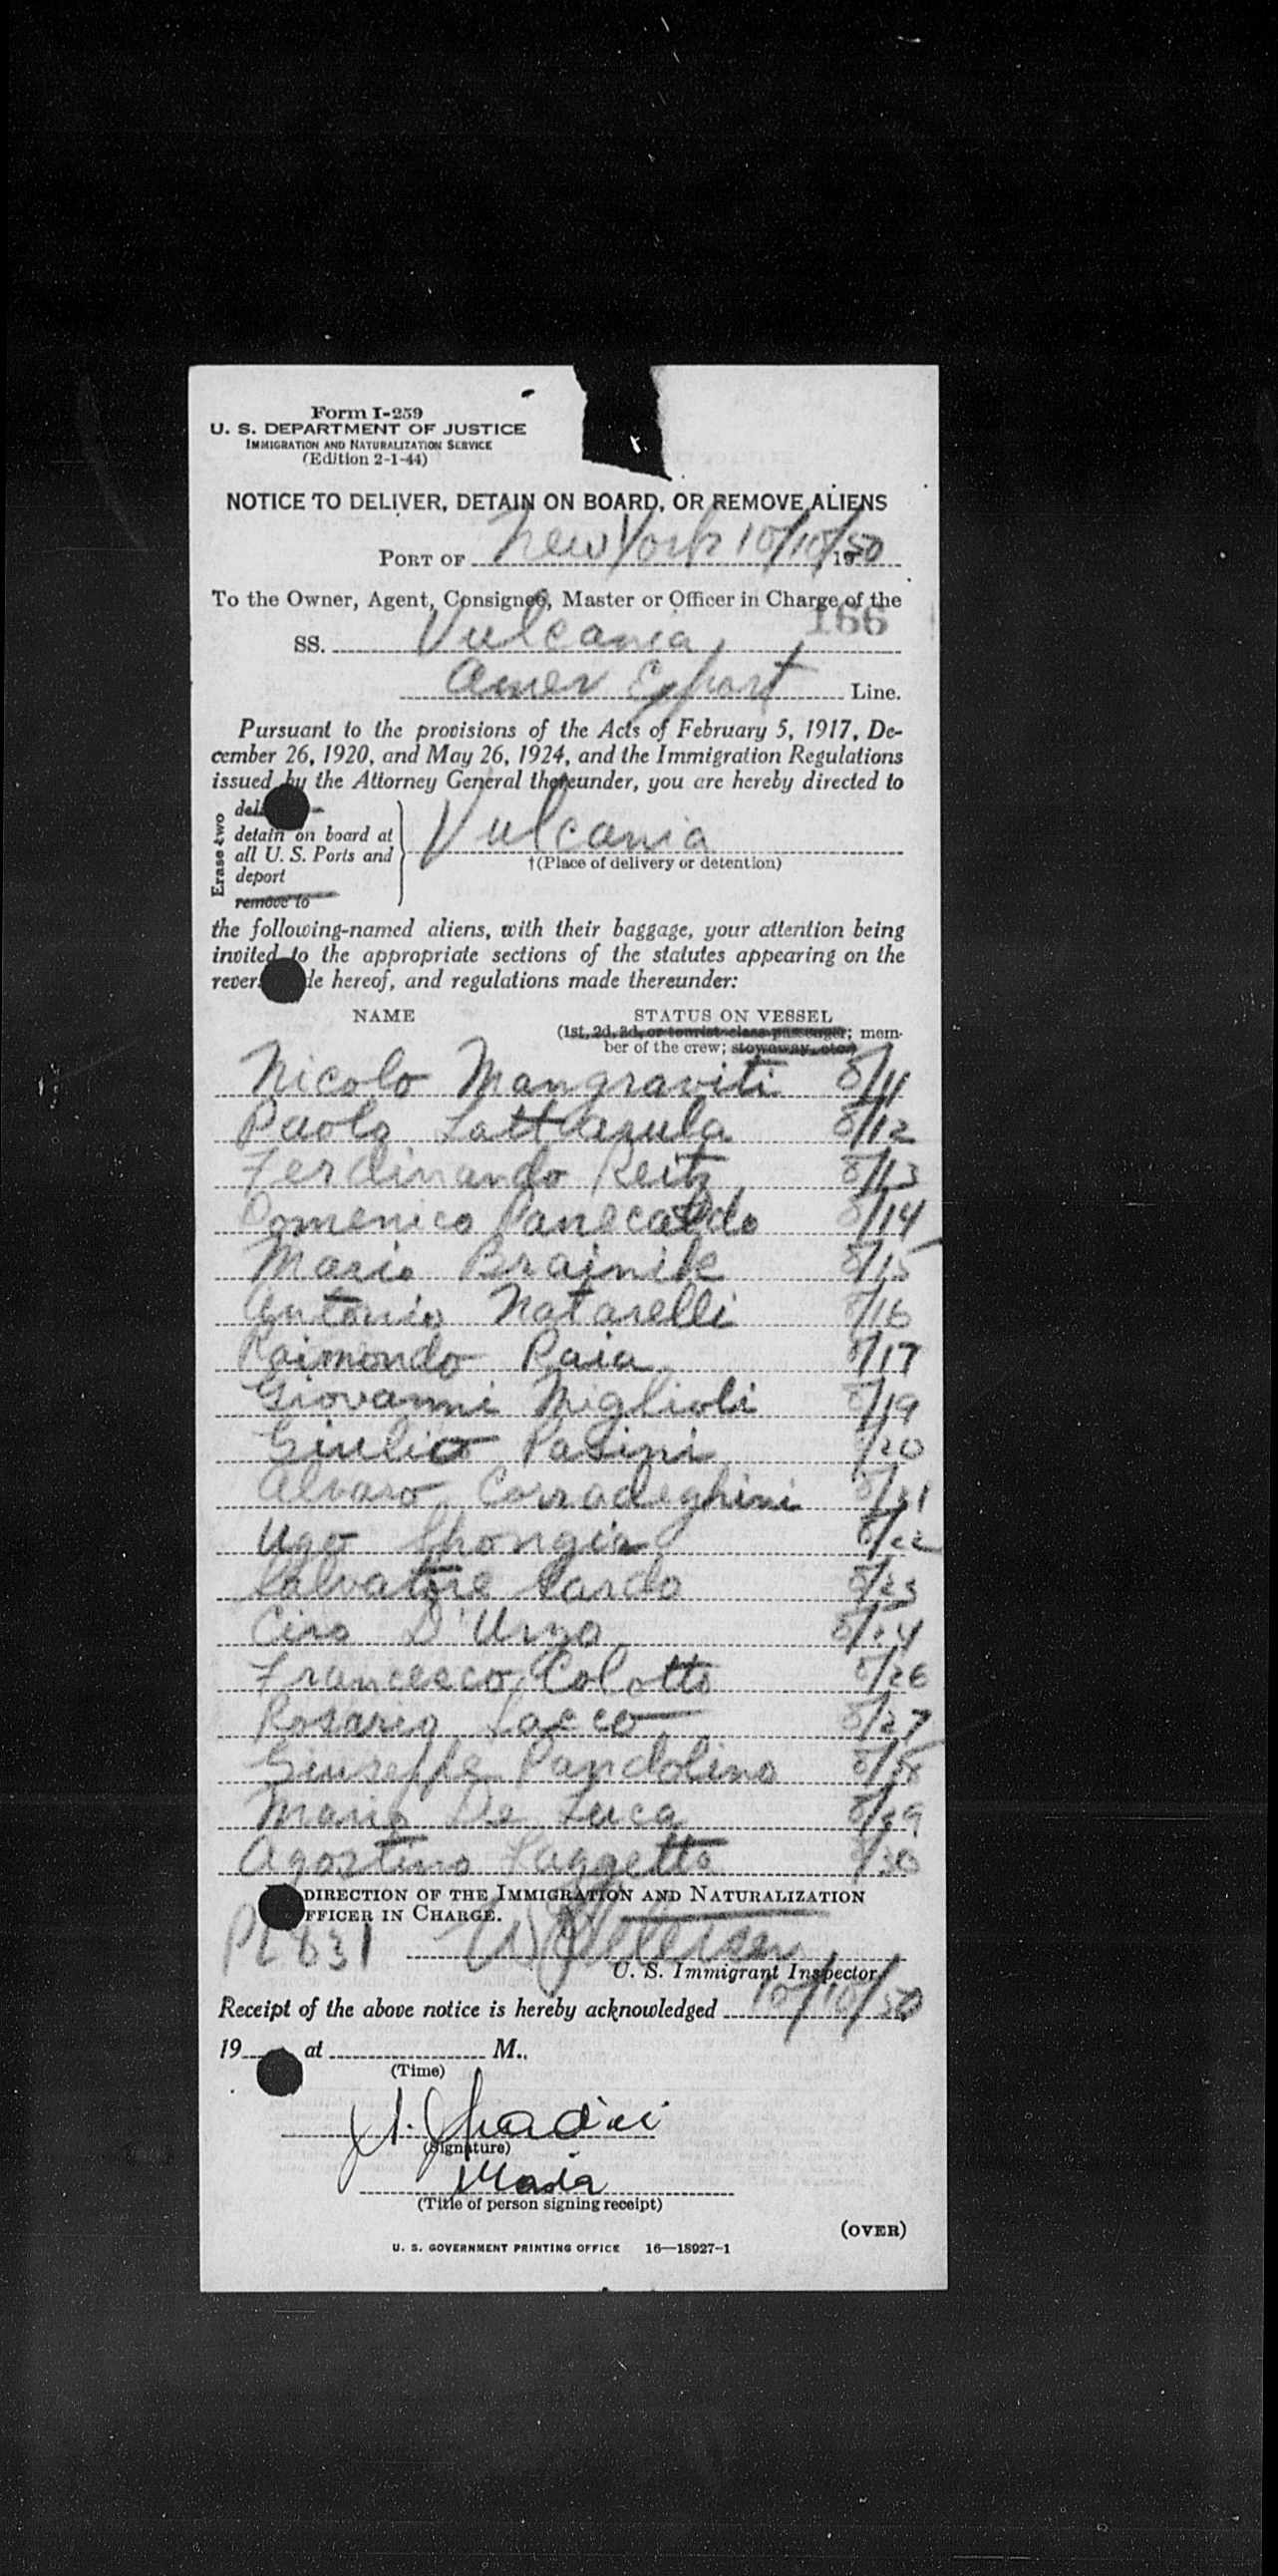 Form I-259
U. S. DEPARTMENT OF JUSTICE
IMMIGRATION AND NATURALIZATION SERVICE
(Edition 2-1-44)
NOTICE TO DELIVER, DETAIN ON BOARD, OR REMOVE ALIENS
PORT OF New York 10/10/50
To the Owner, Agent, Consignee, Master or Officer in Charge of the
166
SS. Vulcania
Amer Export Line.
Pursuant to the provisions of the Acts of February 5, 1917, De-
cember 26, 1920, and May 26, 1924, and the Immigration Regulations
issued by the Attorney General thereunder, you are hereby directed to
Erase two
detain on board at
all U. S. Ports and
deport
remove to
Vulcania
†(Place of delivery or detention)
the following-named aliens, with their baggage, your attention being
invited to the appropriate sections of the statutes appearing on the
hereof, and regulations made thereunder:
NAME STATUS ON VESSEL
(1st, 2d, 3d, or tourist class passenger; mem-
ber of the crew; stowaway, etc.)
Nicolo Mangraviti 8/11
Paolo 8/12
Ferdinando Reitz 8/13
Domenico Panecaldo 8/14
Mario Brainik 8/15
Antonio Natarelli 8/16
Raimondo Raia 8/17
Giovanni Miglioli 8/19
Giulio Pasini 8/20
Alvaro Corradeghini 8/21
Ugo Spongia 8/22
Salvatore Sardo 8/23
Ciro D'Urzo 8/24
Francesco Colotto 8/26
Rosario Sacco 8/27
Giuseppe Pandolino 8/28
Mario De Luca 8/29
Agostino 8/30
DIRECTION OF THE IMMIGRATION AND NATURALIZATION
OFFICER IN CHARGE.
U. S. Immigrant Inspector.
Receipt of the above notice is hereby acknowledged 10/10/50
19 at M.,
(Time)
(Signature)
(Title of person signing receipt)
(OVER)
U. S. GOVERNMENT PRINTING OFFICE 16—18927-1